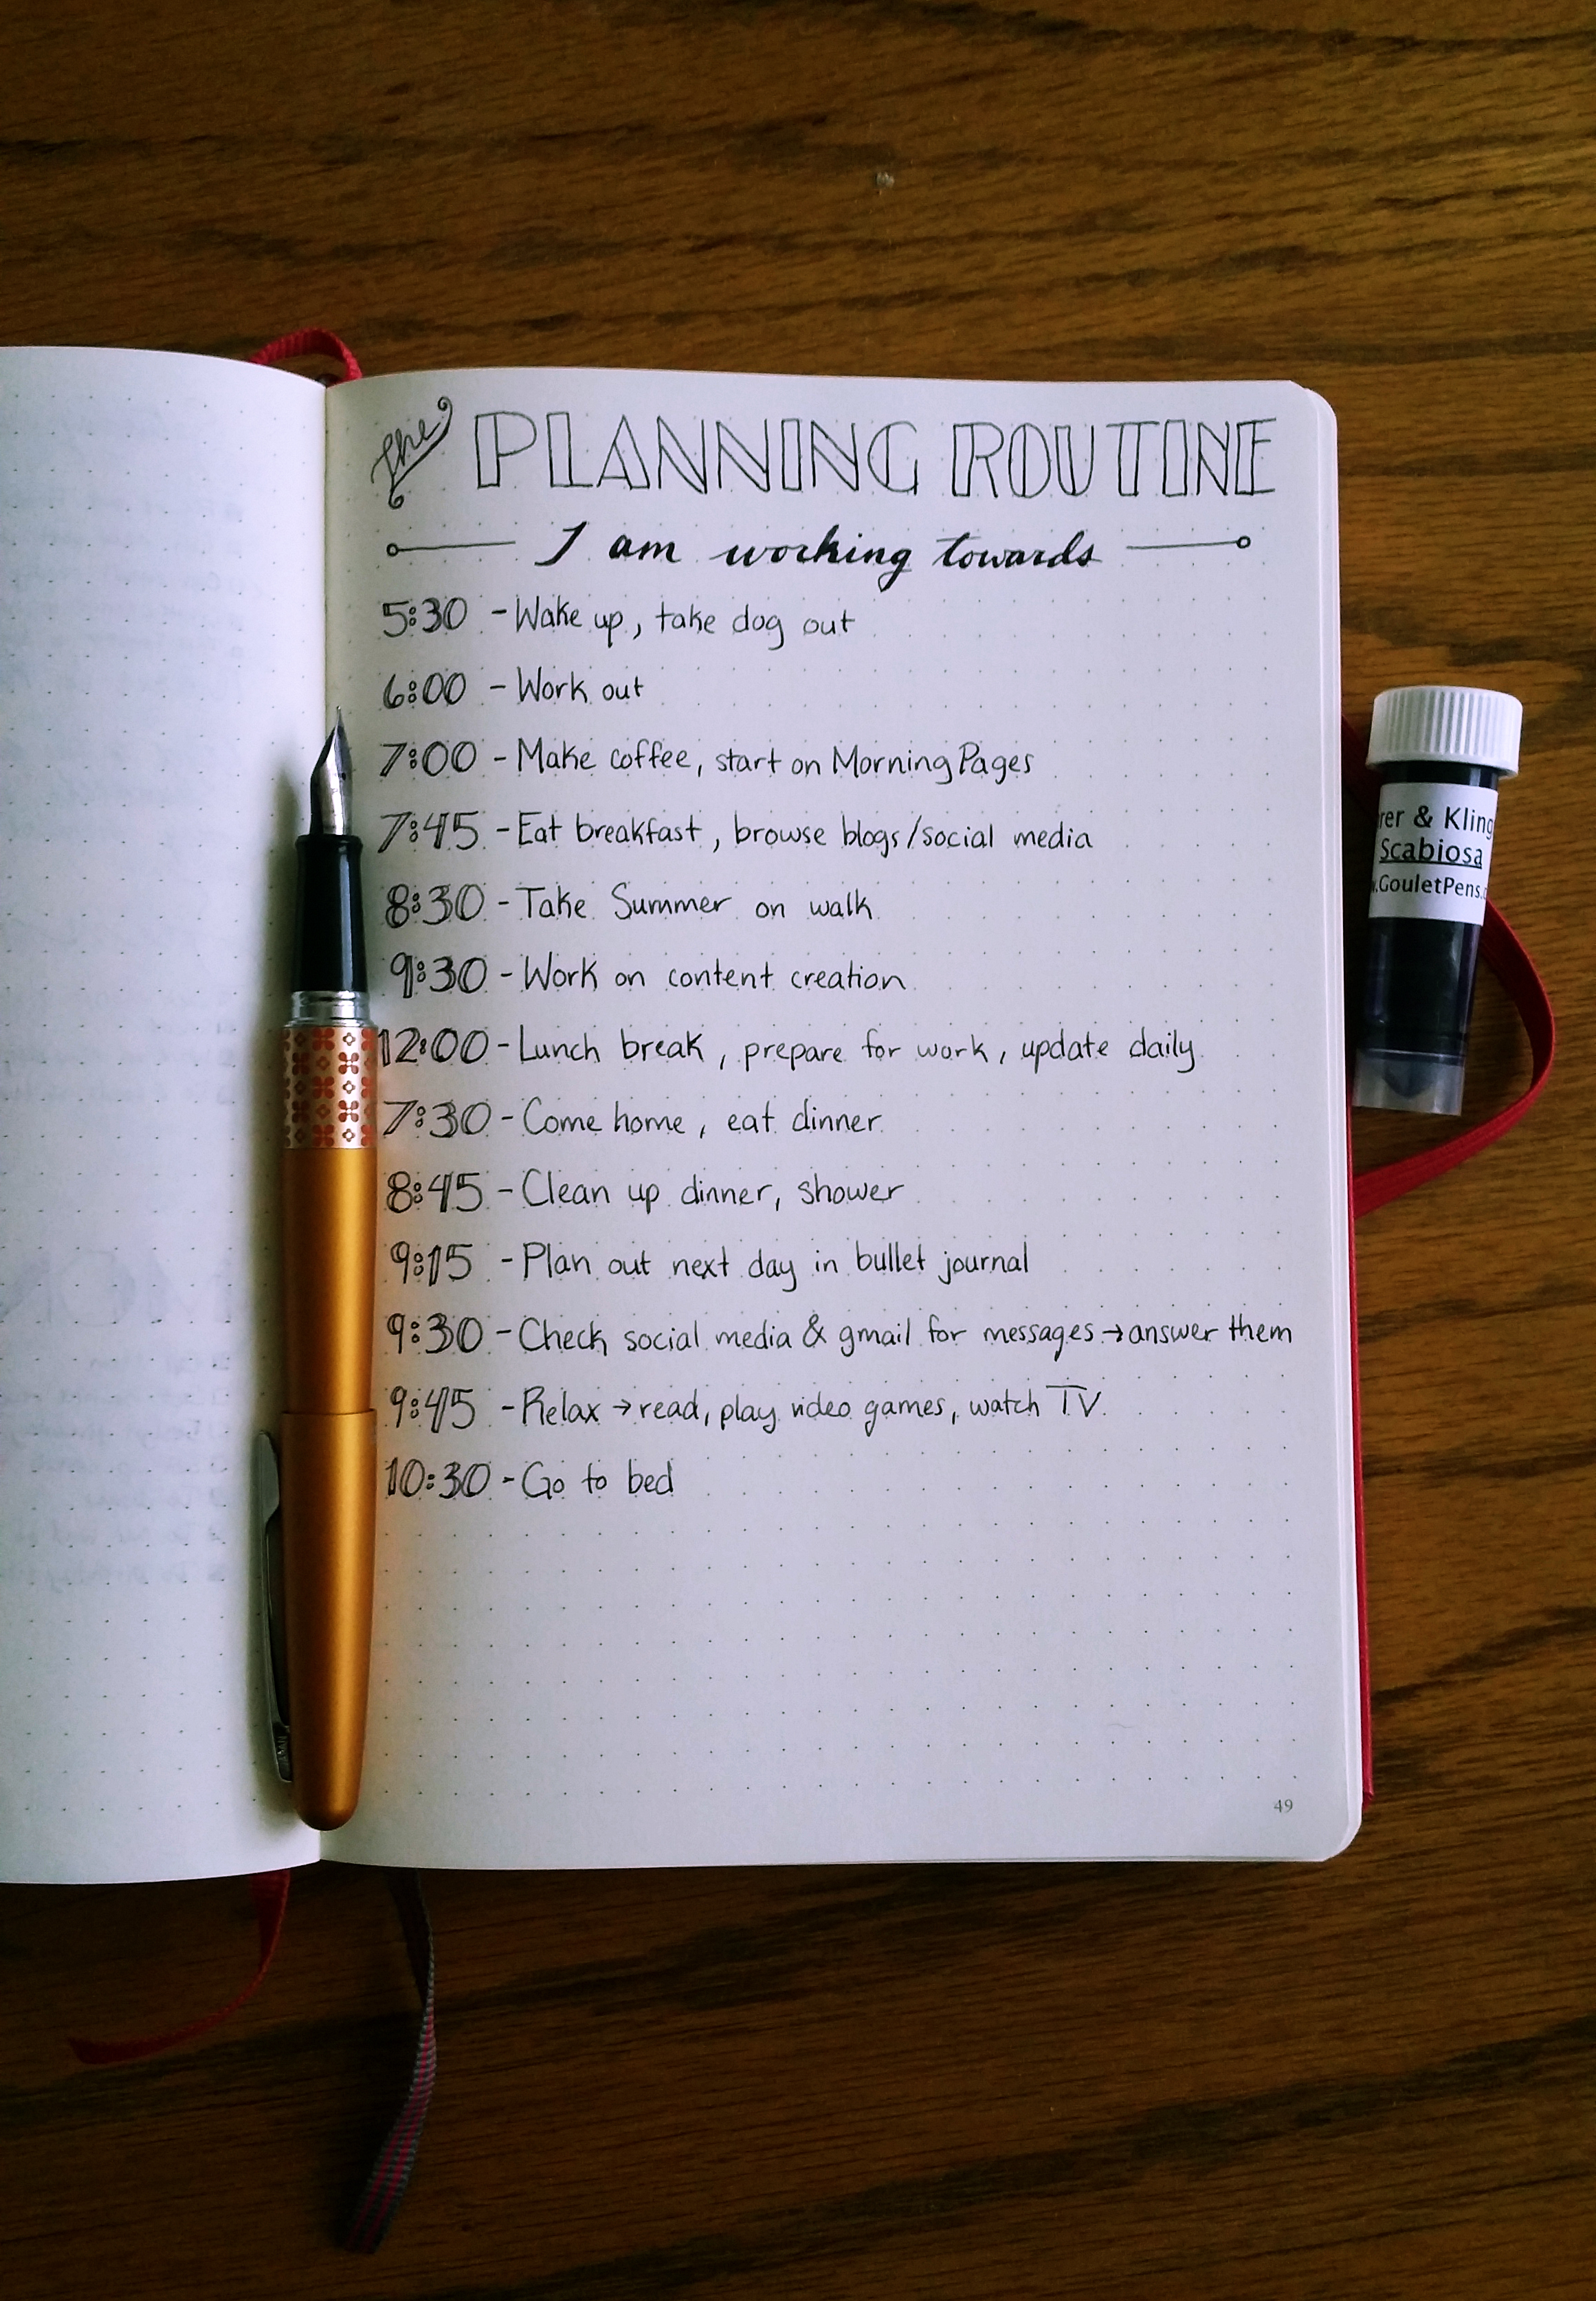 the PLANNING ROUTINE
I am working towards
5:30 - Wake up, take dog out
6:00 - Work out
7:00 - Make coffee, start on Morning Pages
7:45 - Eat breakfast, browse blogs/social media
8:30 - Take Summer on walk
9:30 - Work on content creation
12:00 - Lunch break, prepare for work, update daily
7:30 - Come home, eat dinner
8:45 - Clean up dinner, shower
9:15 - Plan out next day in bullet journal
9:30 - Check social media & gmail for messages → answer them
9:45 - Relax → read, play video games, watch TV
10:30 - Go to bed
49
rer & Kling
Scabiosa
.GouletPens.